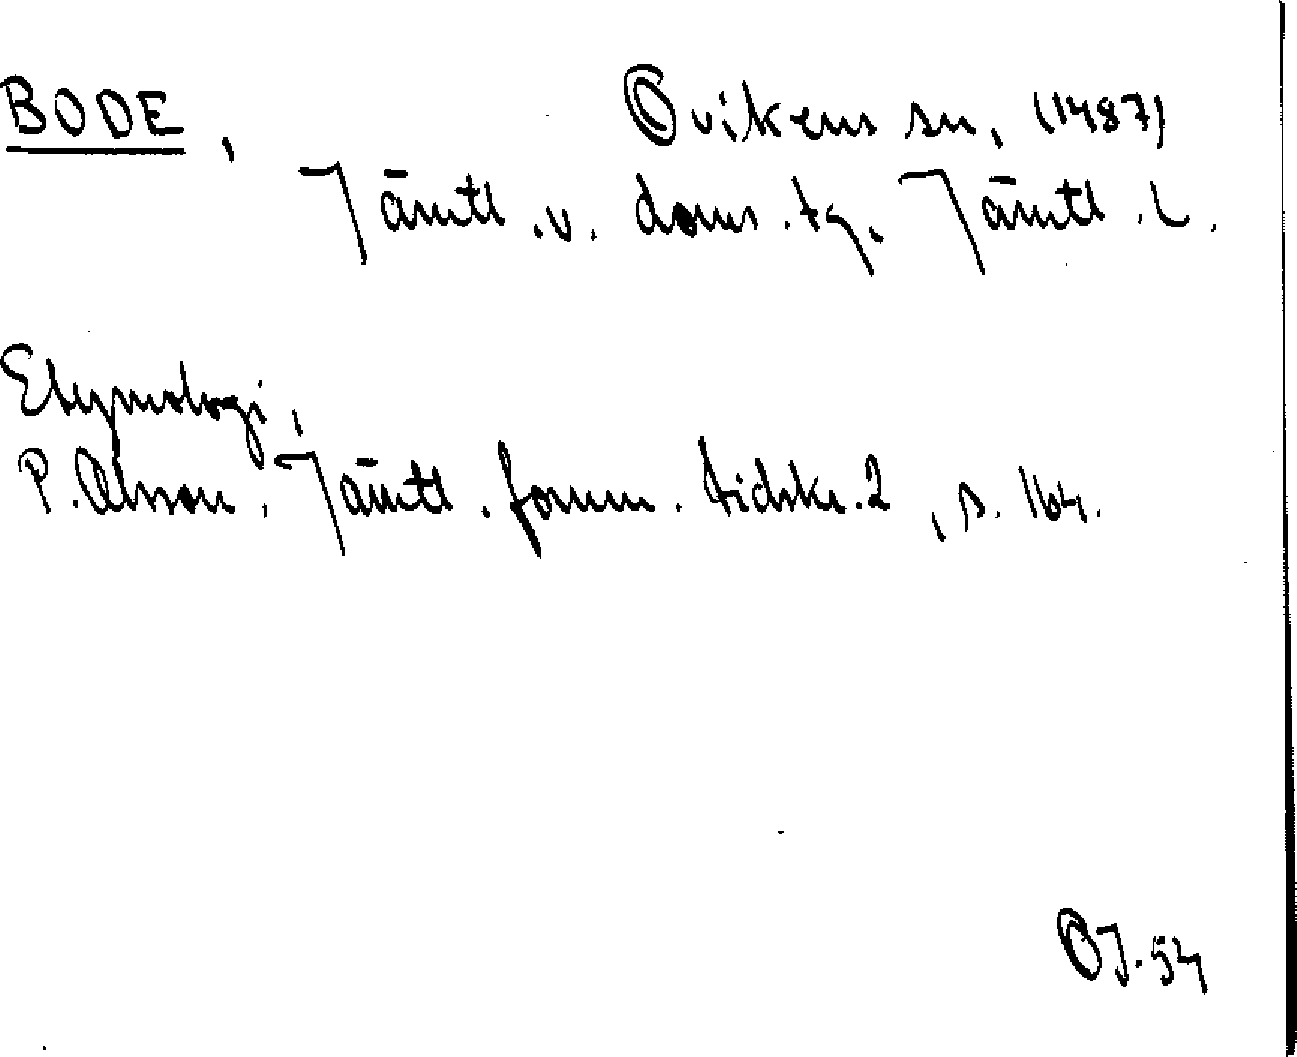 BODE, Ovikens sn, (1487)
Jämtl. v. doms. tg. Jämtl. L.
Etymologi,
P. Olsson, Jämtl. fornm. tidskr. 2, s. 164.
OJ. 54